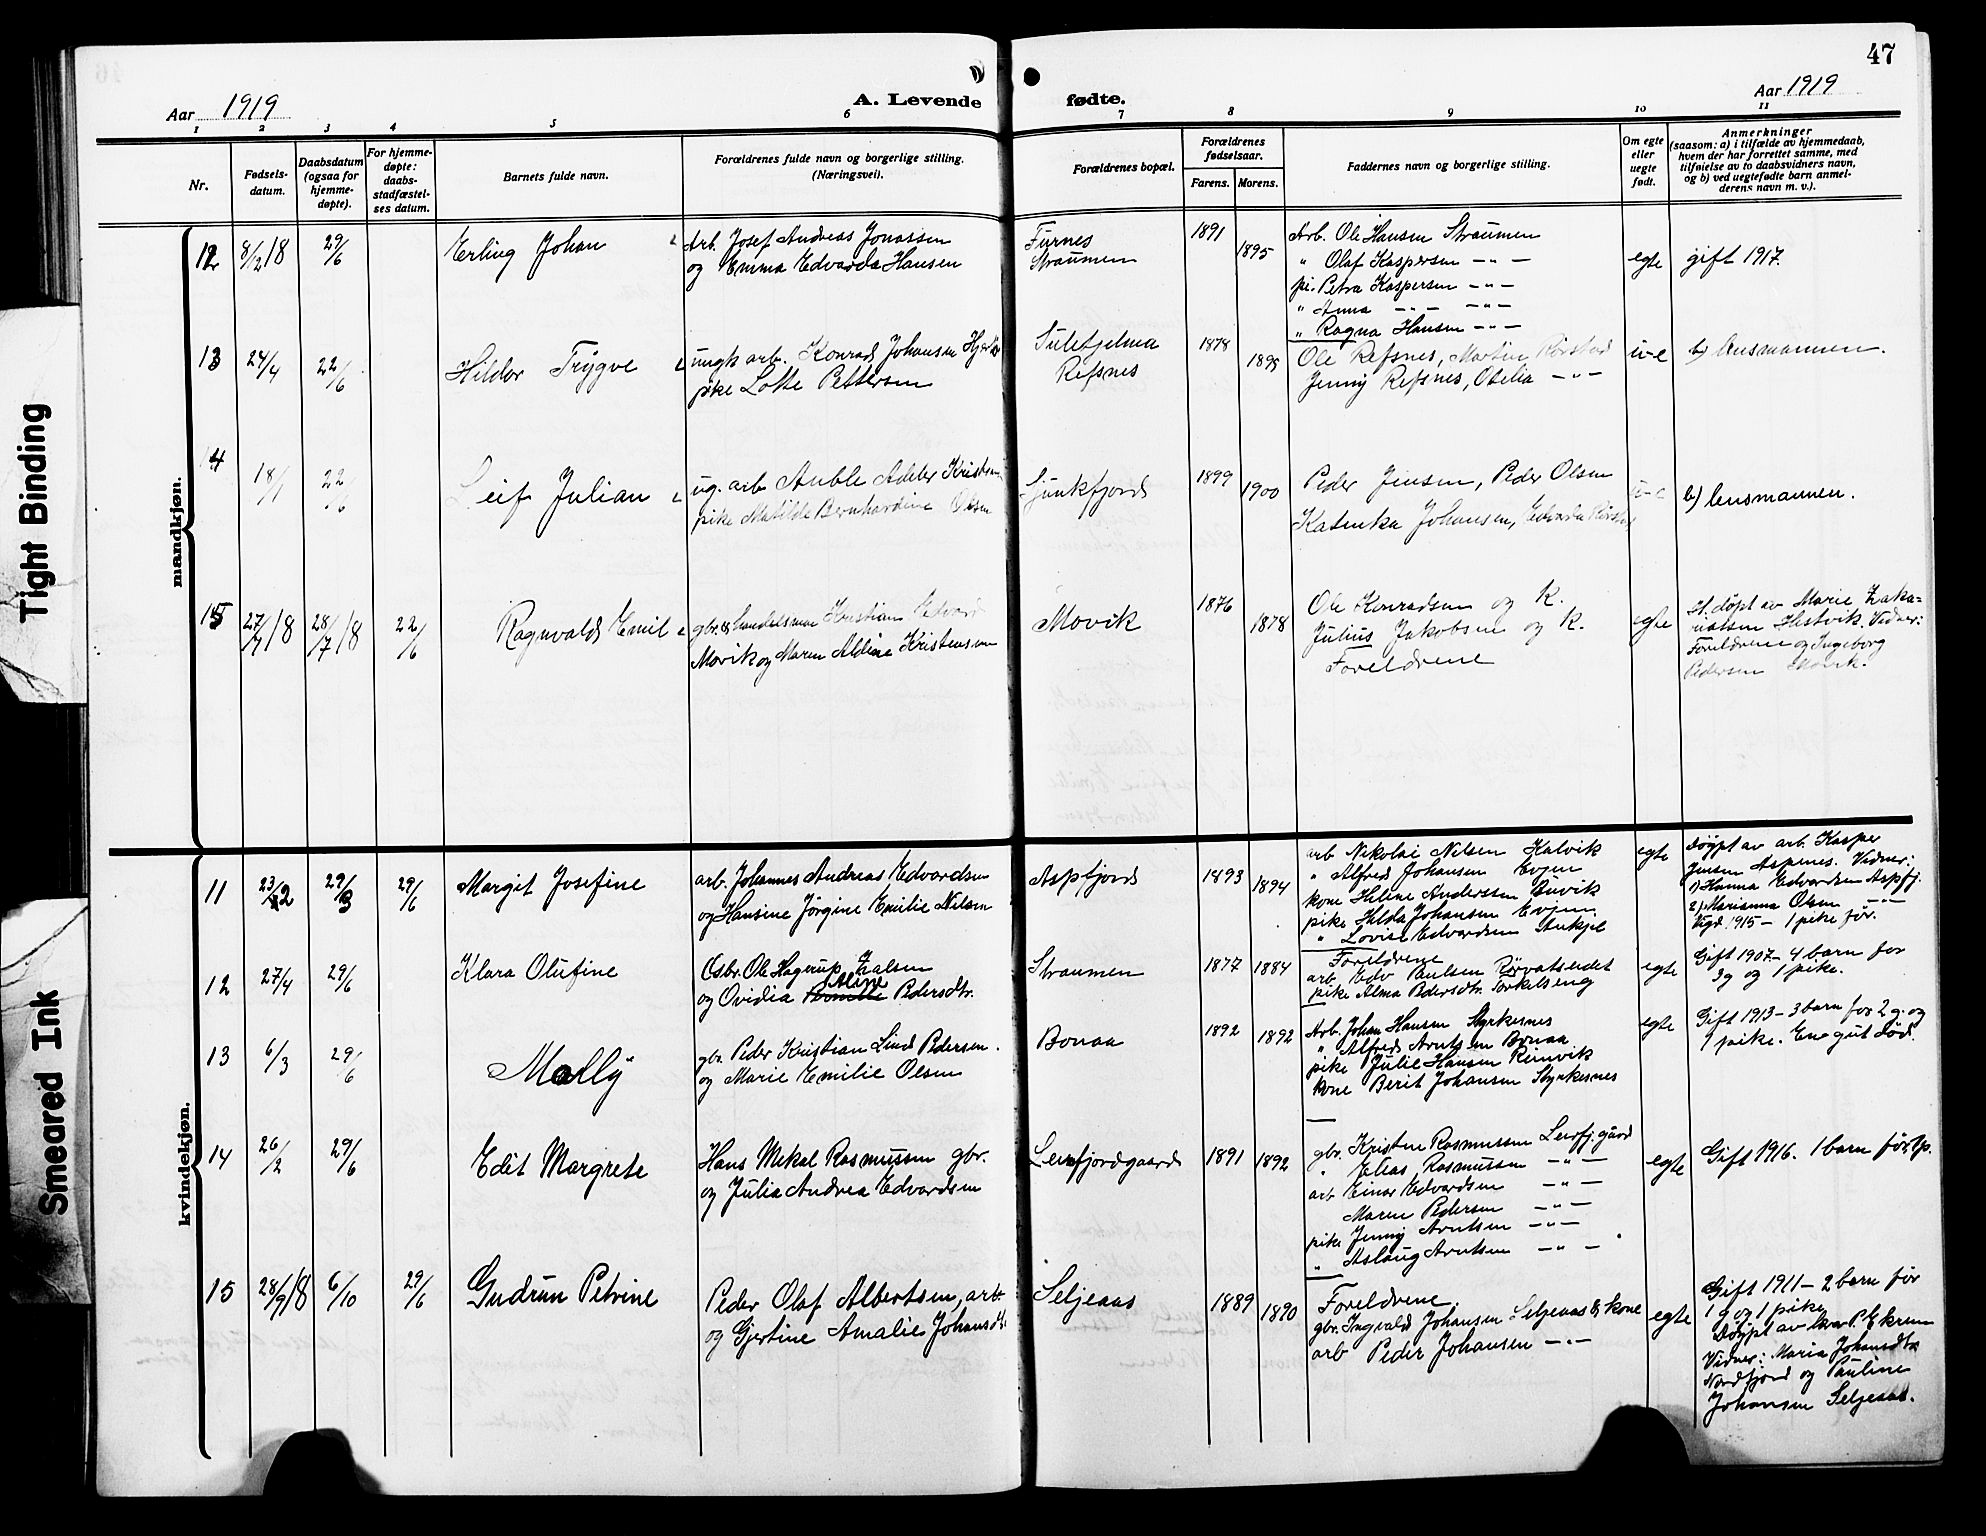 47
Aar 1919
A. Levende fødte.
Aar 1919
1 2 3 4 5 6 7 8 9 10 11
Nr.
Fødsels-
datum.
Daabsdatum
(ogsaa for
hjemme-
døpte).
For hjemme-
døpte:
daabs-
stadfæstel-
ses datum.
Barnets fulde navn.
Forældrenes fulde navn og borgerlige stilling.
(Næringsvei).
Forældrenes bopæl.
Forældrenes
fødselsaar.
Farens. Morens.
Faddernes navn og borgerlige stilling.
Om egte
eller
uegte
født.
Anmerkninger
(saasom: a) i tilfælde av hjemmedaab,
hvem der har forrettet samme, med
tilføielse av to daabsvidners navn,
og b) ved uegtefødte barn anmel-
derens navn m. v.).
mandkjøn.
12 8/12 18 29/6 Erling Johan
Arb. Josef Andreas Jonassen
og Emma Edvarda Hansen
Furnes
Straumen
1891 1895
Arb. Ole Hansen Straumen
" Olaf Kaspersen -"-
pi. Petra Kaspersen -"-
" Anna -"- -"-
" Ragna Hansen -"-
egte gift 1917.
13 24/4 22/6 Hildor Trygve
ungk arb. Konrad Johansen
pike Lotte Pettersen
Sulitjelma
Refsnes
1878 1895
Ole Refsnes, Martin Rørstad
Jenny Refsnes, Otelia -"-
u-e b) lensmannen.
14 18/1 22/6 Leif Julian
ug. arb Anble Adeler
pike Matilde Bernhardine Olsen
Sjunkfjord
1899 1900
Peder Jensen, Peder Olsen
Katinka Johansen, Edvarda
u-e b) lensmannen.
15 27/7 18 28/7 18 22/6 Ragnvald Emil
gbr. og handelsman Kristian Edvard
Movik og Maren Aldine Kristensen
Movik
1876 1878
Ole Konradsen og K.
Julius Jakobsen og K.
Foreldrene
egte
H. døpt av Marie Zaka-
riassen Hestvik. Vidner:
Foreldrene og Ingeborg
Pedersen Movik.
kvindekjøn.
11 23/12 29/3 29/6 Margit Josefine
arb. Johannes Andreas Edvardsen
og Hansine Jørgine Emilie Nilsen
Aspfjord
1893 1894
arb Nikolai Nilsen Kalvik
" Alfred Johansen Evjen
kone Heline Anderssen
pike Hilda Johansen Evjen
" Lovise Edvardsen
egte
Døypt av arb. Kasper
Jensen Aspenes. Vidner:
1) Hanna Edvardsen Aspfj.
2) Marianna Olsen -"-
Vigd 1915 - 1 pike før.
12 27/4 29/6 Klara Olufine
Gsbr. Ole Hagerup Zalsen
Aline
og Ovidia Pedersdtr.
Straumen
1877 1884
Foreldrene
arb Edv Paulsen Rørvatseidet
pike Alma Pedersdtr. Torkelseng
egte
Gift 1907 - 4 barn før
3g og 1 pike.
13 6/3 29/6 Molly
gbr. Peder Kristian Lind Pedersen.
og Marie Emilie Olsen
Bonaa
1892 1892
Arb. Johan Hansen Styrkesnes
" Alfred Arntsen Bonaa
pike Julie Hansen Reinvik
kone Berit Johansen Styrkesnes
egte
Gift 1913 - 3 barn før 2 g. og
1 pike. En gut død.
14 26/2 29/6 Edit Margrete
Hans Mikal Rasmussen gbr.
og Julia Andrea Edvardsen
Leirfjordgaard
1891 1892
gbr. Kristen Rasmussen Leirfj.gård
" Elias Rasmussen -"-
arb Einar Edvardsen -"-
Maren Pedersen -"-
pike Jenny Arntsen -"-
" Aslaug Arntsen -"-
egte
Gift 1916. 1 barn før, 1p.
15 28/9 18 6/10 29/6 Gudrun Petrine
Peder Olaf Albertsen, arb
og Gjertine Amalie Johansdtr.
Seljeaas
1889 1890
Foreldrene
gbr. Ingvald Johansen Seljeaas & kone
arb Peder Johansen -"-
egte
Gift 1911 - 2 barn før
1 g og 1 pike
Døypt av P. Ekrem
Vidner: Maria Johansdtr.
Nordfjord og Pauline
Johansen Seljeaas.
Tight Binding
Smeared Ink